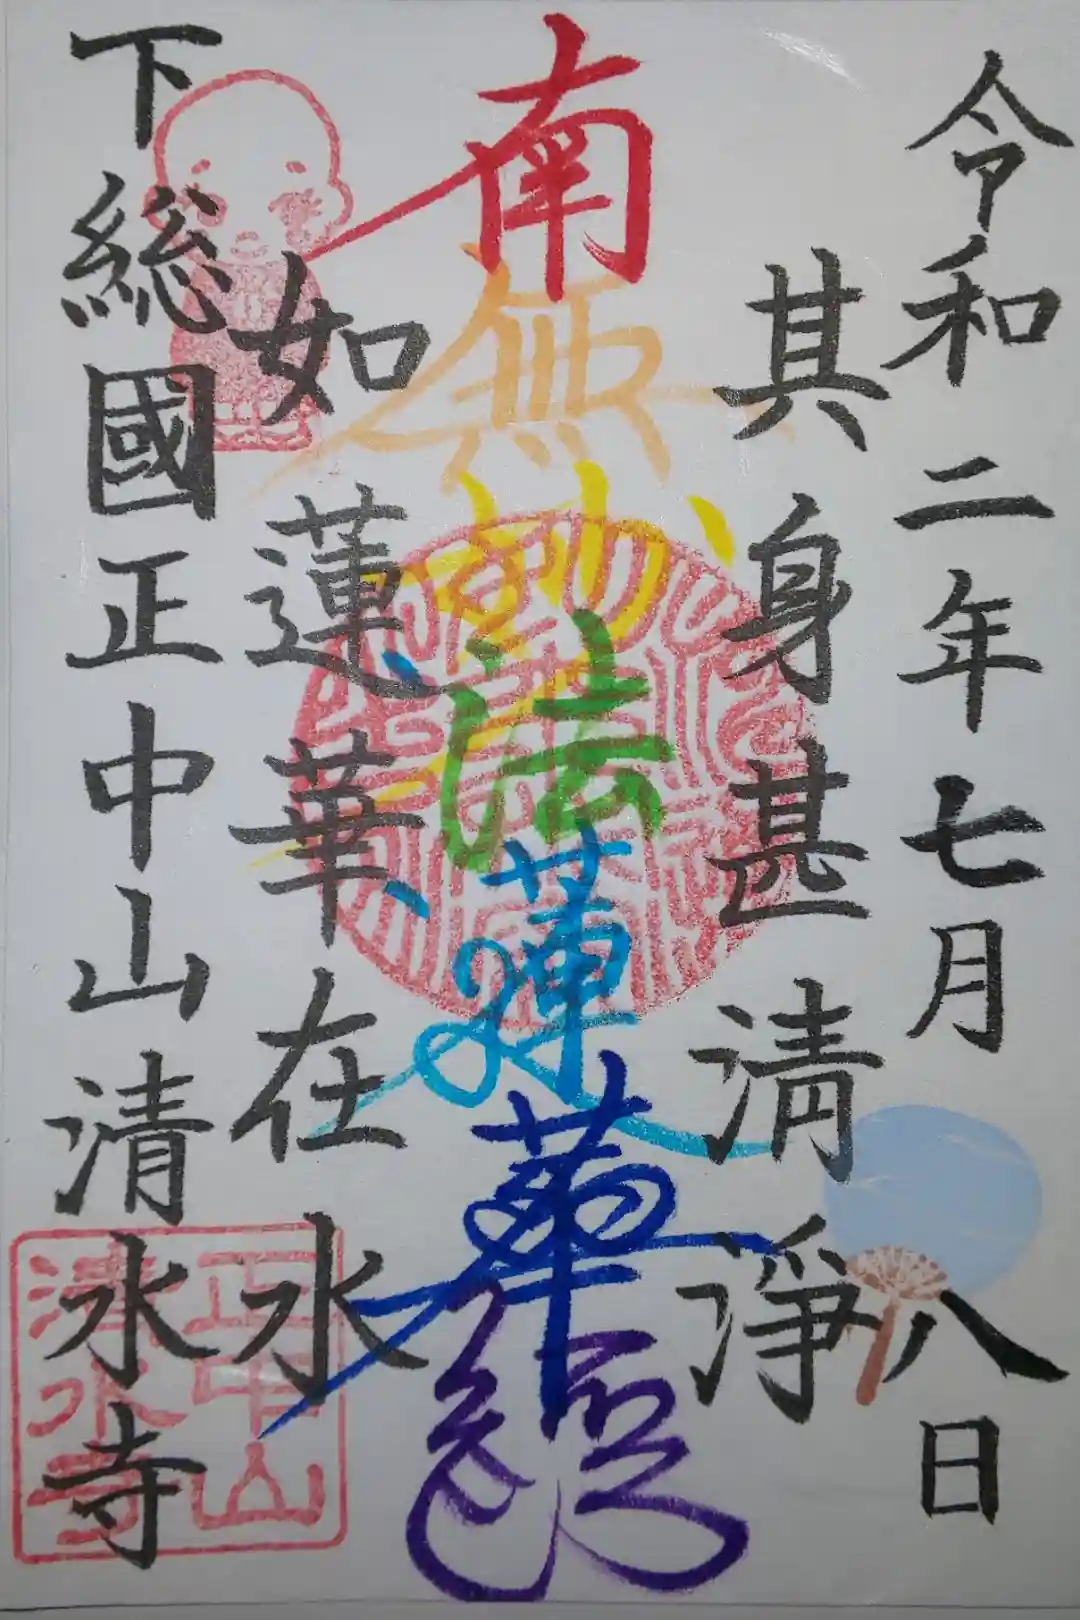 令和二年七月八日
其身甚清淨
南無妙法蓮華經
如蓮華在水
下総國正中山清水寺
正中山
清水寺